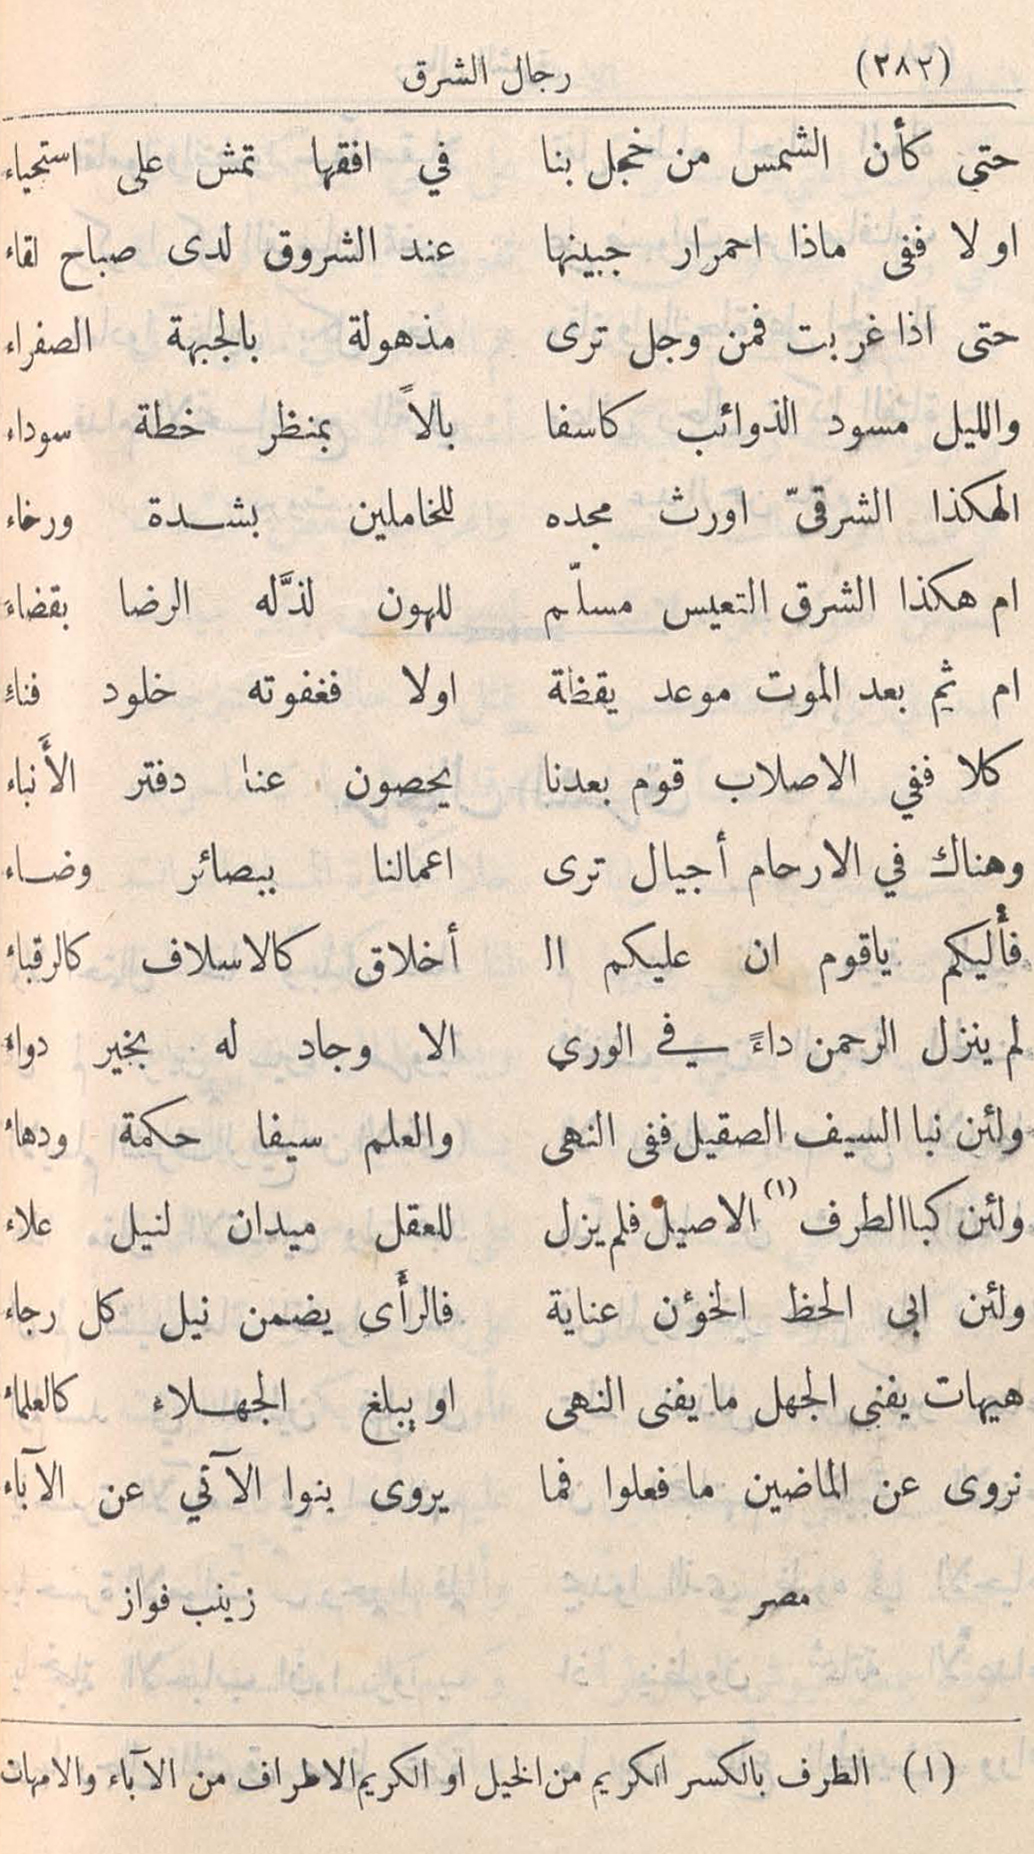 (٢٨٢) رجال الشرق
حتى كأن الشمس من خجل بنا في افقها تمش على استحياء
او لا ففى ماذا احمرار جبينها عند الشروق لدى صباح لقاء
حتى اذا غربت فمن وجل ترى مذهولة بالجبهة الصفراء
والليل مسود الذوائب كاسفا بالاً بمنظر خطة سوداء
الهكذا الشرقىّ اورث مجده للخاملين بشدة ورخاء
ام هكذا الشرق التعيس مسلّم للهون لذَّله الرضا بقضاء
ام ثم بعد الموت موعد يقظة اولا فغفوته خلود فناءِ
كلا ففي الاصلاب قوم بعدنا يحصون عنا دفتر الأَنباء
وهناك في الارحام أجيال ترى اعمالنا ببصائر وضاء
فأليكم ياقوم ان عليكم ال أخلاق كالاسلاف كالرقباء
لم ينزل الرحمن داءً في الورى الا وجاد له بخير دواء
ولئن نبا السيف الصقيل ففى النهى والعلم سيفا حكمة ودهاء
ولئن كبا الطرف (١) الاصيل فلم يزل للعقل ميدان لنيل علاء
ولئن ابى الحظ الخوٴن عناية فالرأَى يضمن نيل كل رجاء
هيهات يفنى الجهل ما يفنى النهى او يبلغ الجهلاء كالعلماء
نروى عن الماضين ما فعلوا فما يروى بنوا الآتي عن الآباء
مصر زينب فواز
(١) الطرف بالكسر الكريم من الخيل او الكريم الاطراف من الآباء والامهات